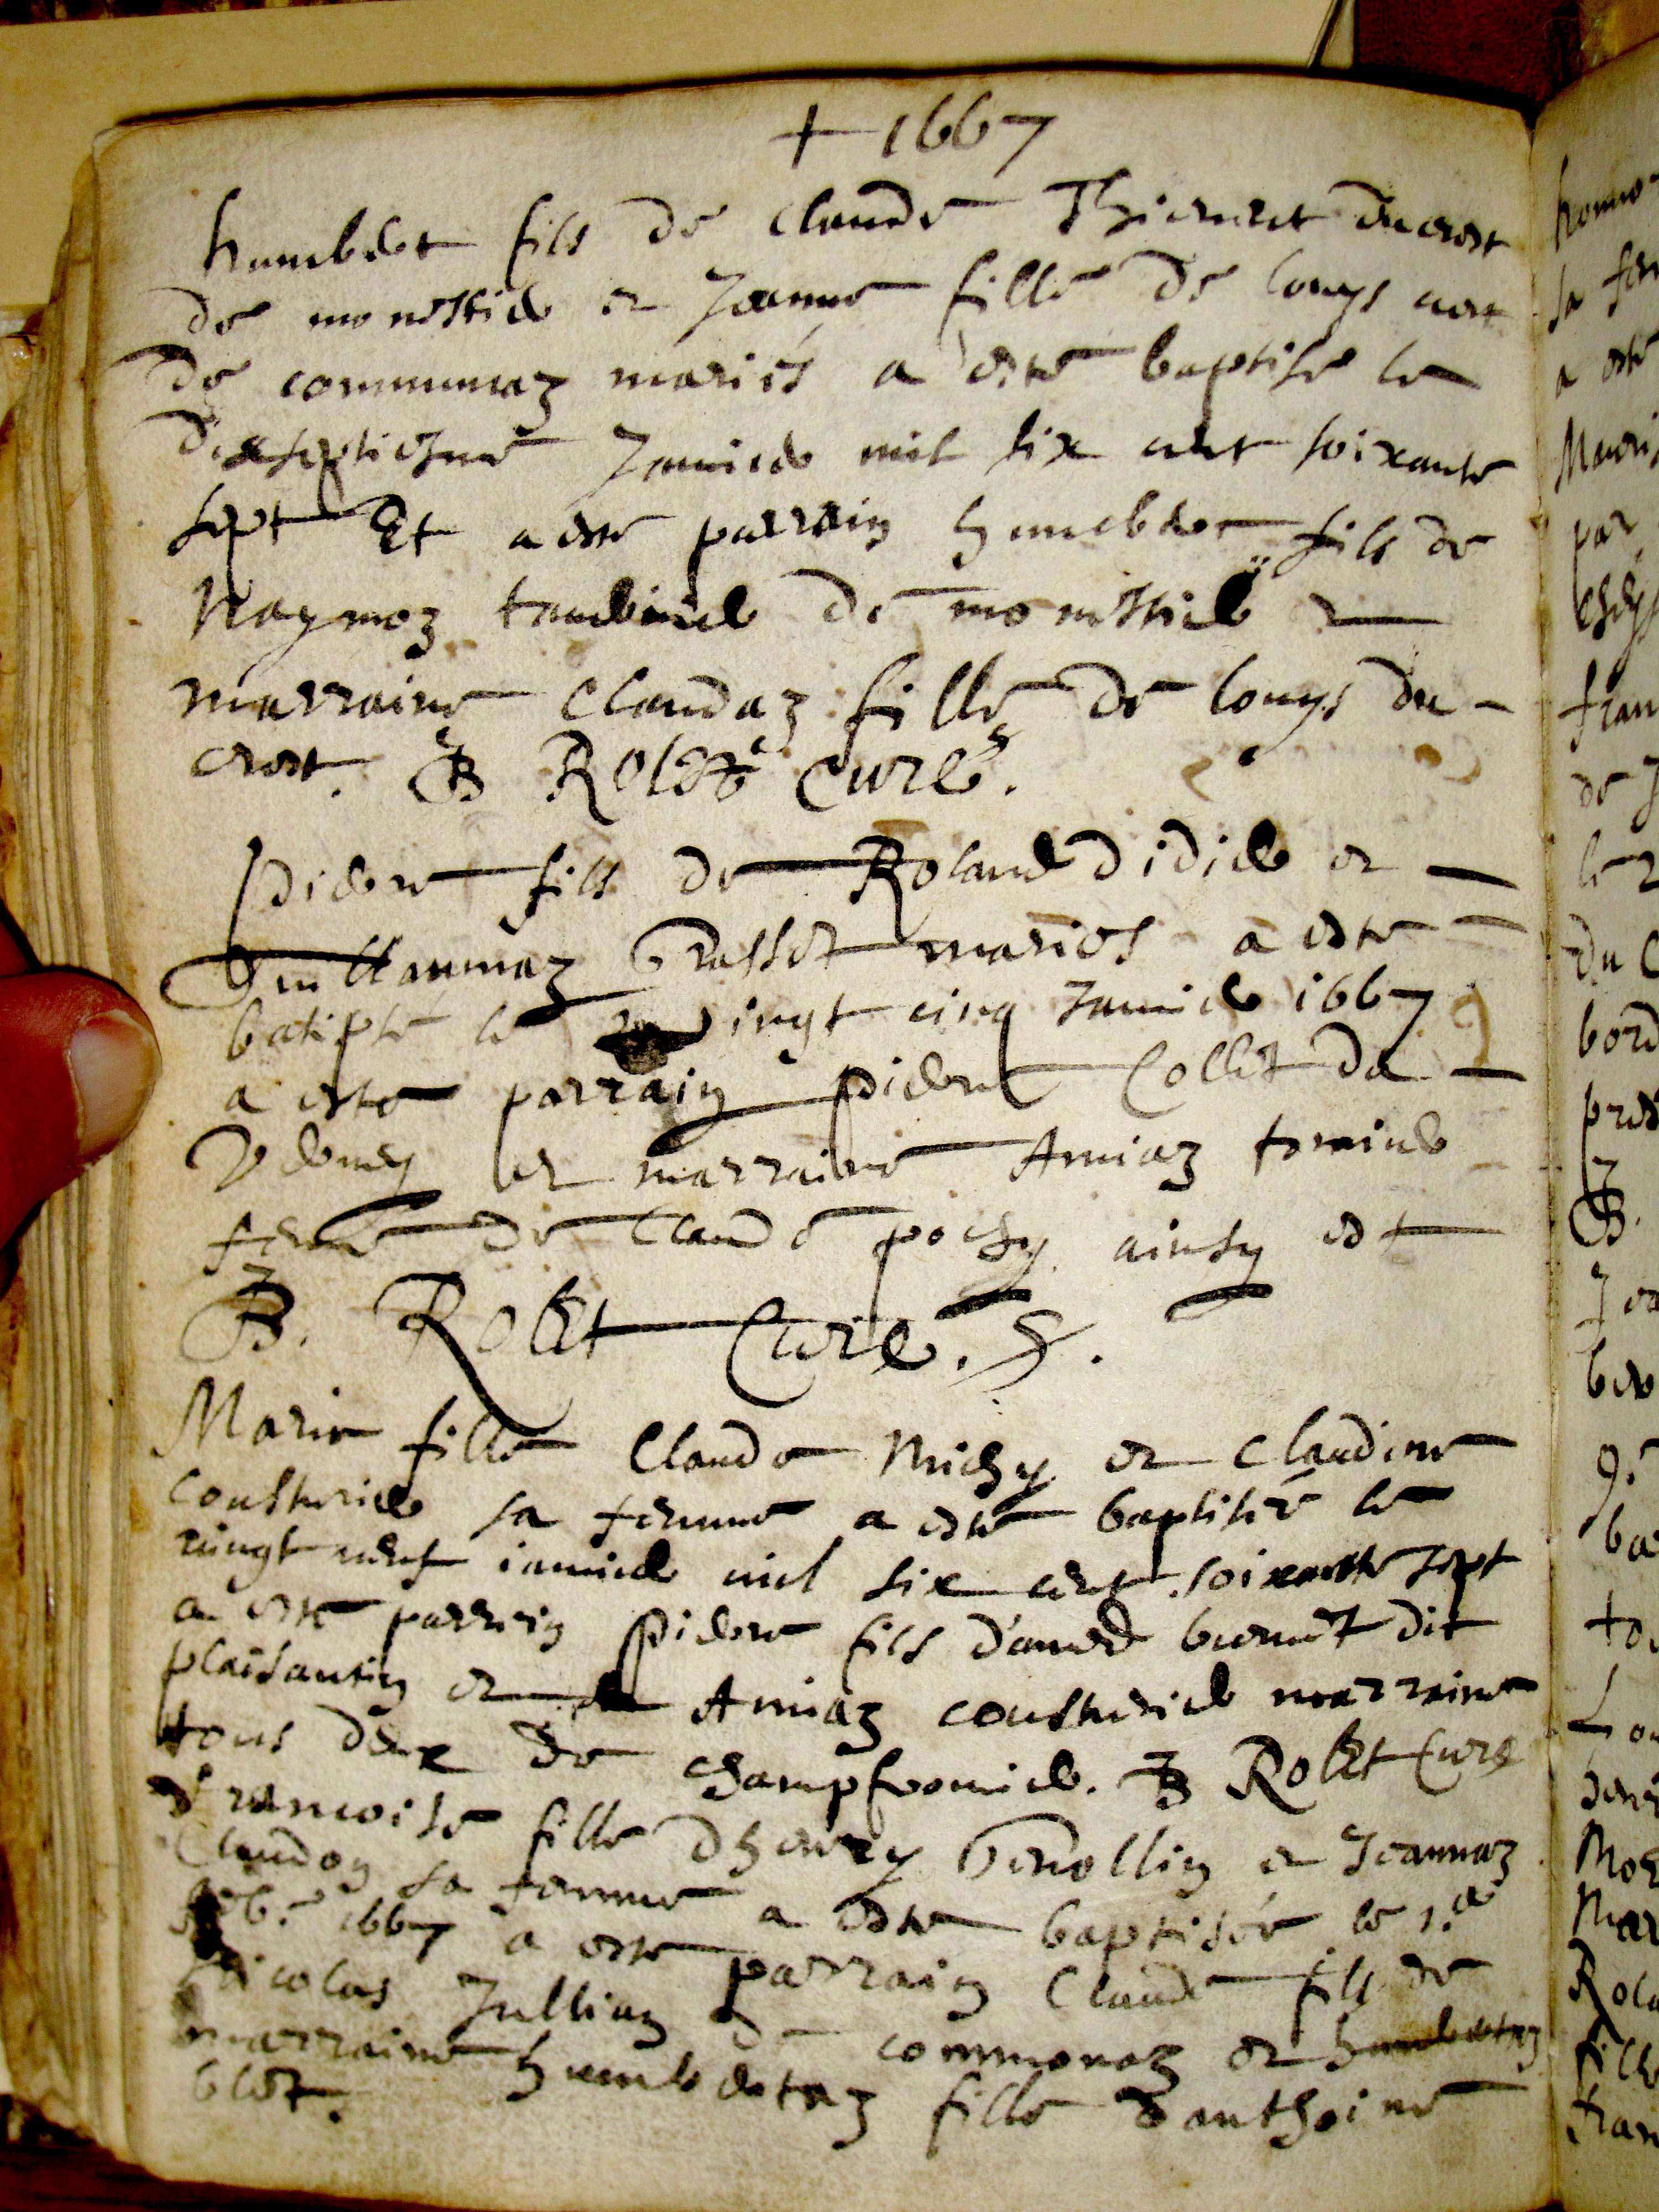 + 1667
humbert fils de claude Thievent ducrest
de monestier et Jeanne fille de louys
de communaz mariés a esté baptisé le
dixseptiesme Janvier mil six cent soixante
sept Et a esté parrain humbert fils de
Naymoz tavernier de monestier et
marraine claudaz fille de louys du-
crest. B Rolet Curé.
Pierre fils de Roland didier et
Guillaumaz Grasset mariés a esté
batipsé le vingt cinq Janvier 1667
a este parrain pierre Collet da
et marraine Amiaz
feme de Claude pochy ainsy est
B. Rolet Curé.
Marie fille Claude Michy et Claudine
cousturier sa femme a esté baptisée le
vingt neuf ianvier mil six cent soixante sept
a esté parrein Pierre fils d'amed burnet dit
plaisantin et Amiaz cousturier marraine
tous deux de champfromier. B Rolet Curé
Francoise fille dhenry Genollin et Jeannaz
Claudon sa femme a esté baptisée le 1.er
feb.r 1667 a esté parrain Claude fils de
Nicolas Jullian de communaz et humbertaz
marraine humbertaz fille d'anthoine
blet.
homo
sa fem
a esté
Mauri
par
chey
fran
de J
le 2
du C
bord
pres
B.
Jea
ber
ba
Lou
Mar
Rola
fille
fran